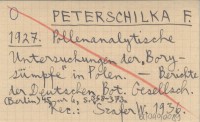 O PETERSCHILKA F.
1927. Pollenanalytische
Untersuchungen der „Bory-
sümpfe" in Polen. – Berichte
der Deutschen Bot. Gesellsch.
(Berlin) 45,
Rec.: Szafer W. 1930.